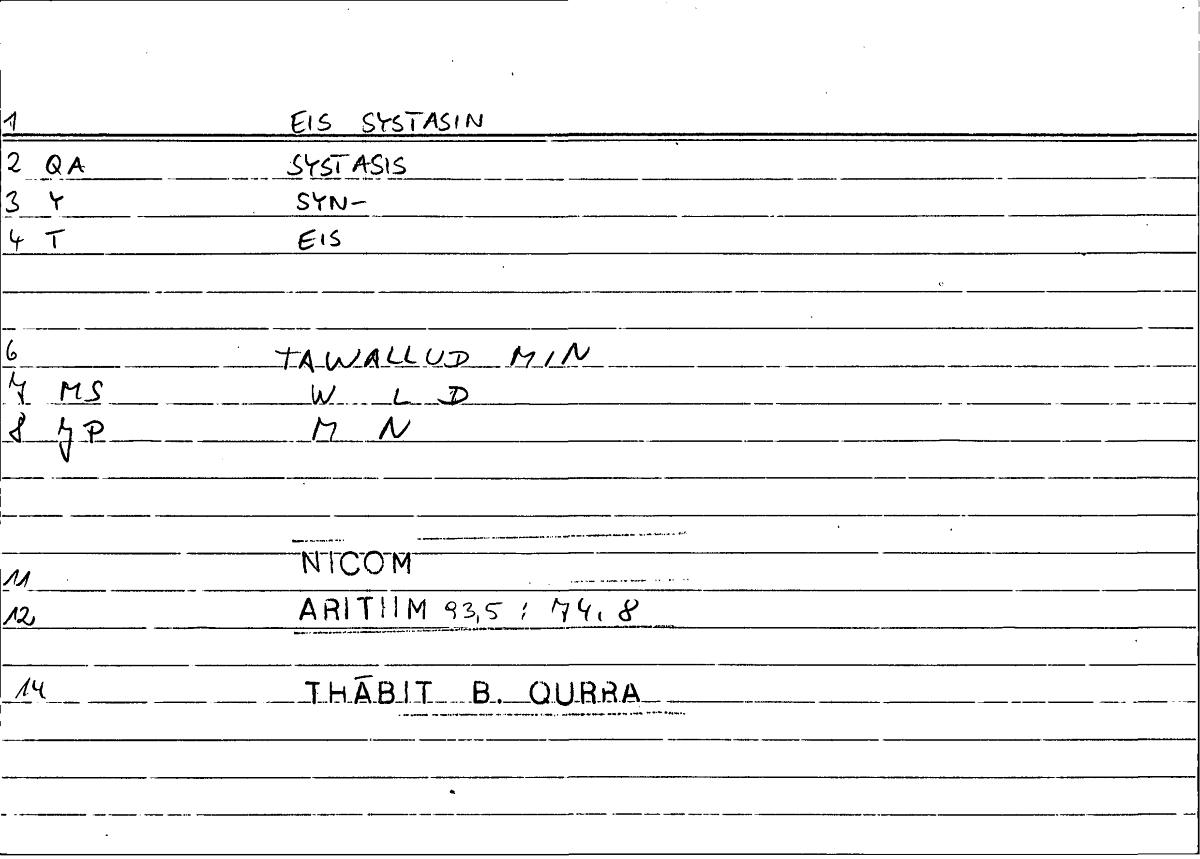 1 EIS SYSTASIN
2 QA SYSTASIS
3 Y SYN-
4 T EIS
6 TAWALLUD MIN
7 MS W L D
8 JP M N
11 NICOM
12 ARITHM 93,5 : 74,8
14 THĀBIT B. QURRA